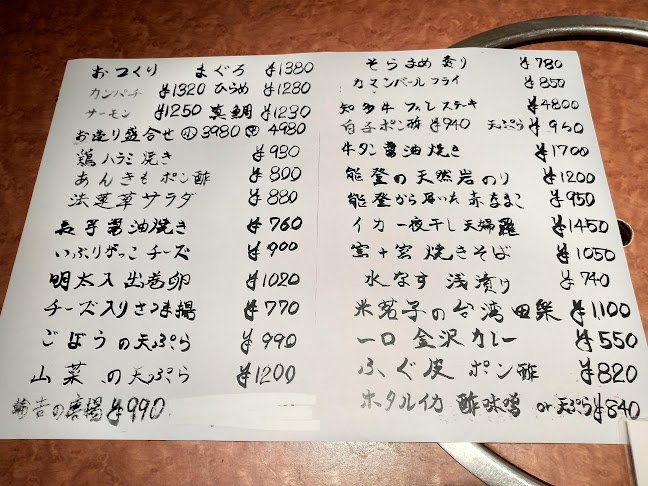 おつくり まぐろ ¥1380
カンパチ ¥1320 ひらめ ¥1280
サーモン ¥1250 真鯛 ¥1230
お造り盛合せ ㊥3980
鶏ハラミ焼き ¥930
あんきもポン酢 ¥800
法蓮草サラダ ¥880
長芋醤油焼き ¥760
いぶりがっこチーズ ¥900
明太入出巻卵 ¥1020
チーズ入りさつま揚 ¥770
ごぼうの天ぷら ¥990
山菜の天ぷら ¥1200
の唐揚 ¥990
そらまめ 香り ¥780
カマンベールフライ ¥850
知多牛フィレステーキ ¥4800
白子ポン酢 ¥940 天ぷら ¥940
牛タン醤油焼き ¥1700
能登の天然岩のり ¥1200
能登から届いた赤なまこ ¥950
イカ一夜干し天婦羅 ¥1450
焼きそば ¥1050
水なす 浅漬け ¥740
米茄子の台湾田楽 ¥1,100
一口 金沢カレー ¥550
ふぐ皮ポン酢 ¥820
ホタルイカ 酢味噌 or 天ぷら ¥840